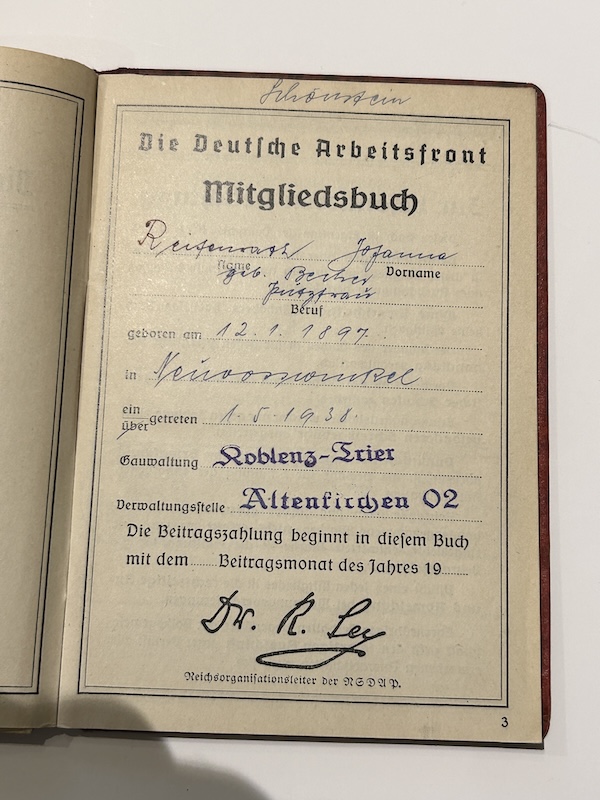 Schönstein
Die Deutsche Arbeitsfront
Mitgliedsbuch
Reifenrath Johanna
Name Vorname
geb. Becher
Putzfrau
Beruf
geboren am 12. 1. 1897.
in
ein
über getreten 1. 5. 1938.
Gauwaltung Koblenz-Trier
Verwaltungsstelle Altenkirchen 02
Die Beitragszahlung beginnt in diesem Buch
mit dem ...... Beitragsmonat des Jahres 19......
Dr. R. Ley
Reichsorganisationsleiter der NSDAP.
3